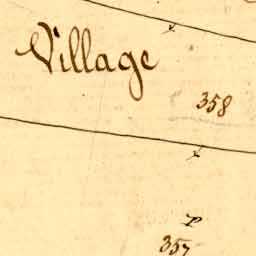 Village
358
P
357